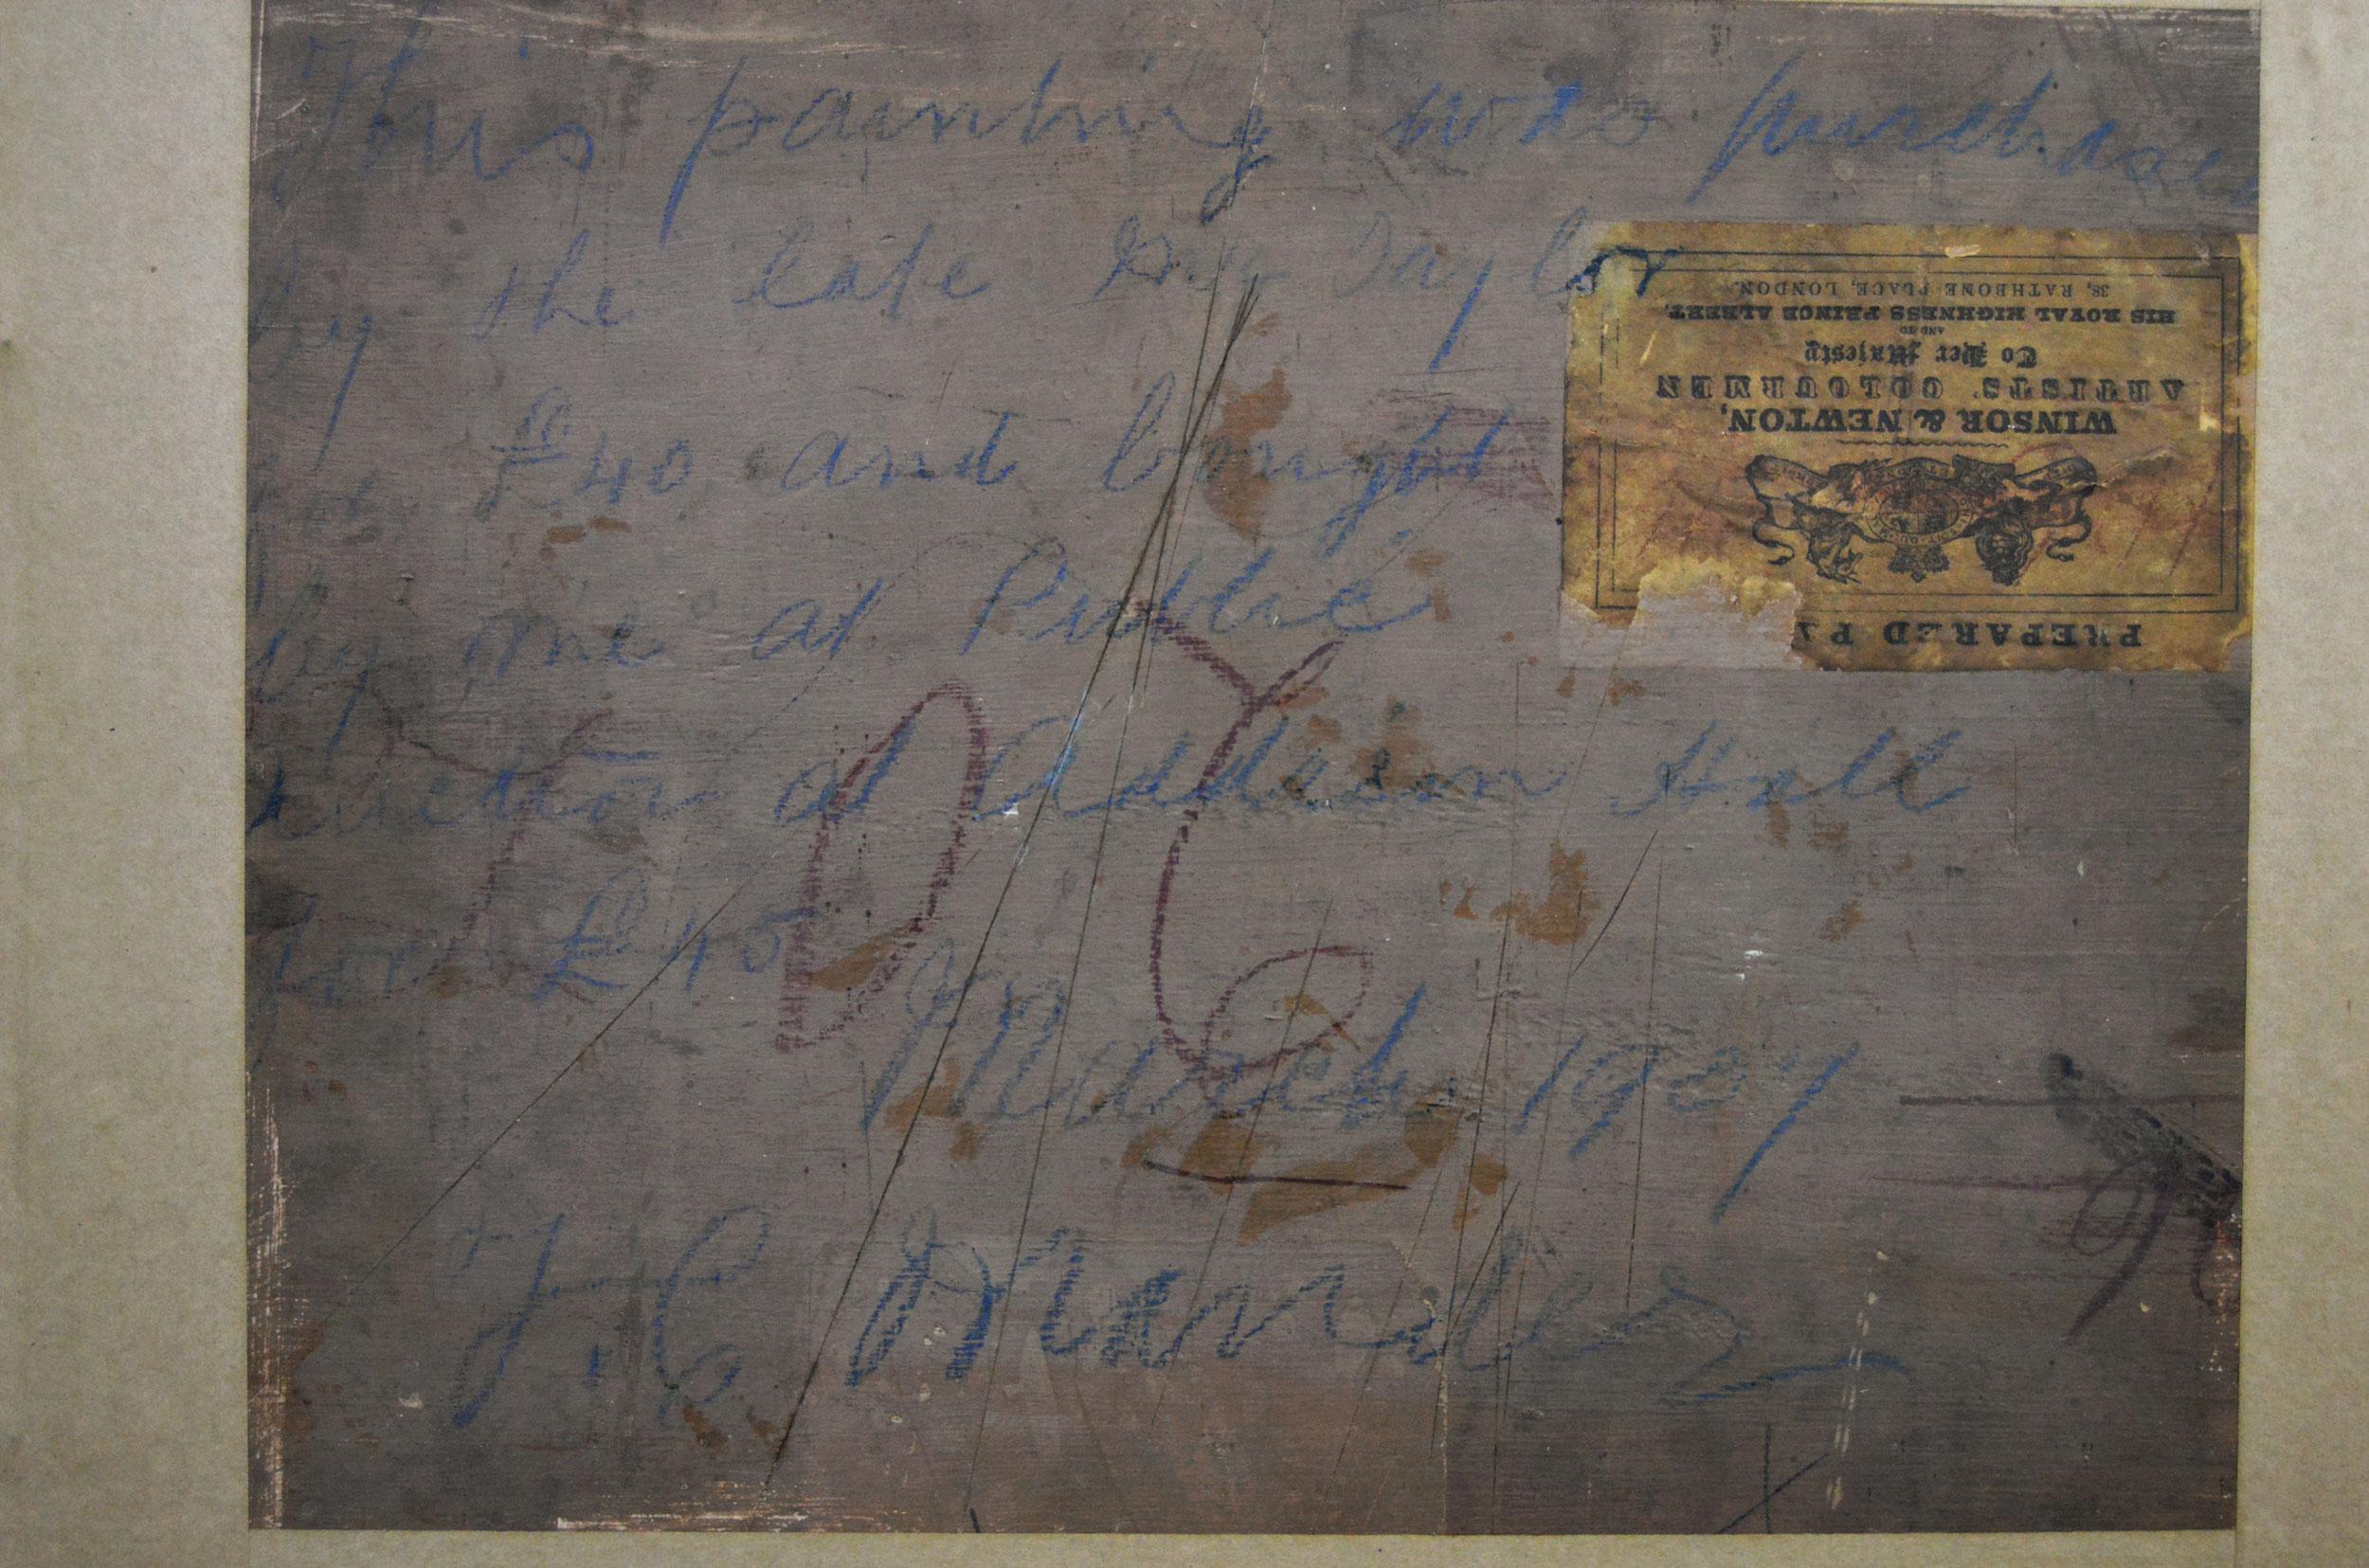 This painting was purchase
by the late Taylor
for £40 and bought
by me at Public
auction at Addison Hall
for £45
March 1927
J. C.
PREPARED
WINSOR & NEWTON,
ARTISTS' COLOURMEN
To Her Majesty
AND TO
HIS ROYAL HIGHNESS PRINCE ALBERT,
38, RATHBONE PLACE, LONDON.